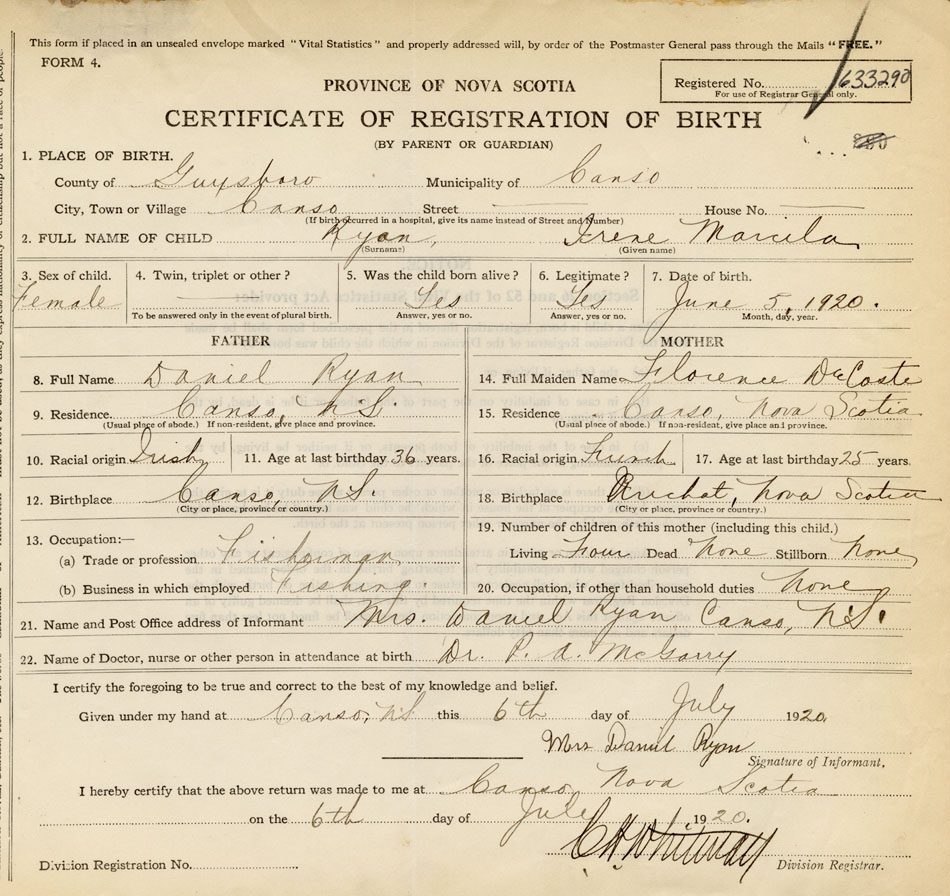 This form if placed in an unsealed envelope marked "Vital Statistics" and properly addressed will, by order of the Postmaster General pass through the Mails "FREE."
FORM 4.
Registered No. 633290
For use of Registrar General only.
PROVINCE OF NOVA SCOTIA
CERTIFICATE OF REGISTRATION OF BIRTH
(BY PARENT OR GUARDIAN)
1. PLACE OF BIRTH.
County of Guysboro Municipality of Canso
City, Town or Village Canso Street House No.
(If birth occurred in a hospital, give its name instead of Street and Number)
2. FULL NAME OF CHILD Ryan, Irene Marcila
(Surname) (Given name)
3. Sex of child. 4. Twin, triplet or other? 5. Was the child born alive? 6. Legitimate? 7. Date of birth.
Female Yes Yes June 5, 1920.
To be answered only in the event of plural birth. Answer, yes or no. Answer, yes or no. Month, day, year.
FATHER
8. Full Name Daniel Ryan
9. Residence. Canso, N.S.
(Usual place of abode.) If non-resident, give place and province.
10. Racial origin Irish 11. Age at last birthday 36 years.
12. Birthplace Canso, N.S.
(City or place, province or country.)
13. Occupation:—
(a) Trade or profession Fisherman
(b) Business in which employed Fishing.
MOTHER
14. Full Maiden Name Florence DeCoste
15. Residence Canso, Nova Scotia
(Usual place of abode.) If non-resident, give place and province.
16. Racial origin French 17. Age at last birthday 25 years.
18. Birthplace Arichat, Nova Scotia
(City or place, province or country.)
19. Number of children of this mother (including this child.)
Living Four Dead None Stillborn None
20. Occupation, if other than household duties None
21. Name and Post Office address of Informant Mrs. Daniel Ryan Canso, N.S.
22. Name of Doctor, nurse or other person in attendance at birth Dr. P. A. McGarry
I certify the foregoing to be true and correct to the best of my knowledge and belief.
Given under my hand at Canso, N.S this 6th day of July 1920
Mrs Daniel Ryan
Signature of Informant,
I hereby certify that the above return was made to me at Canso Nova Scotia
on the 6th day of July 1920.
C H Whitman
Division Registration No. Division Registrar.